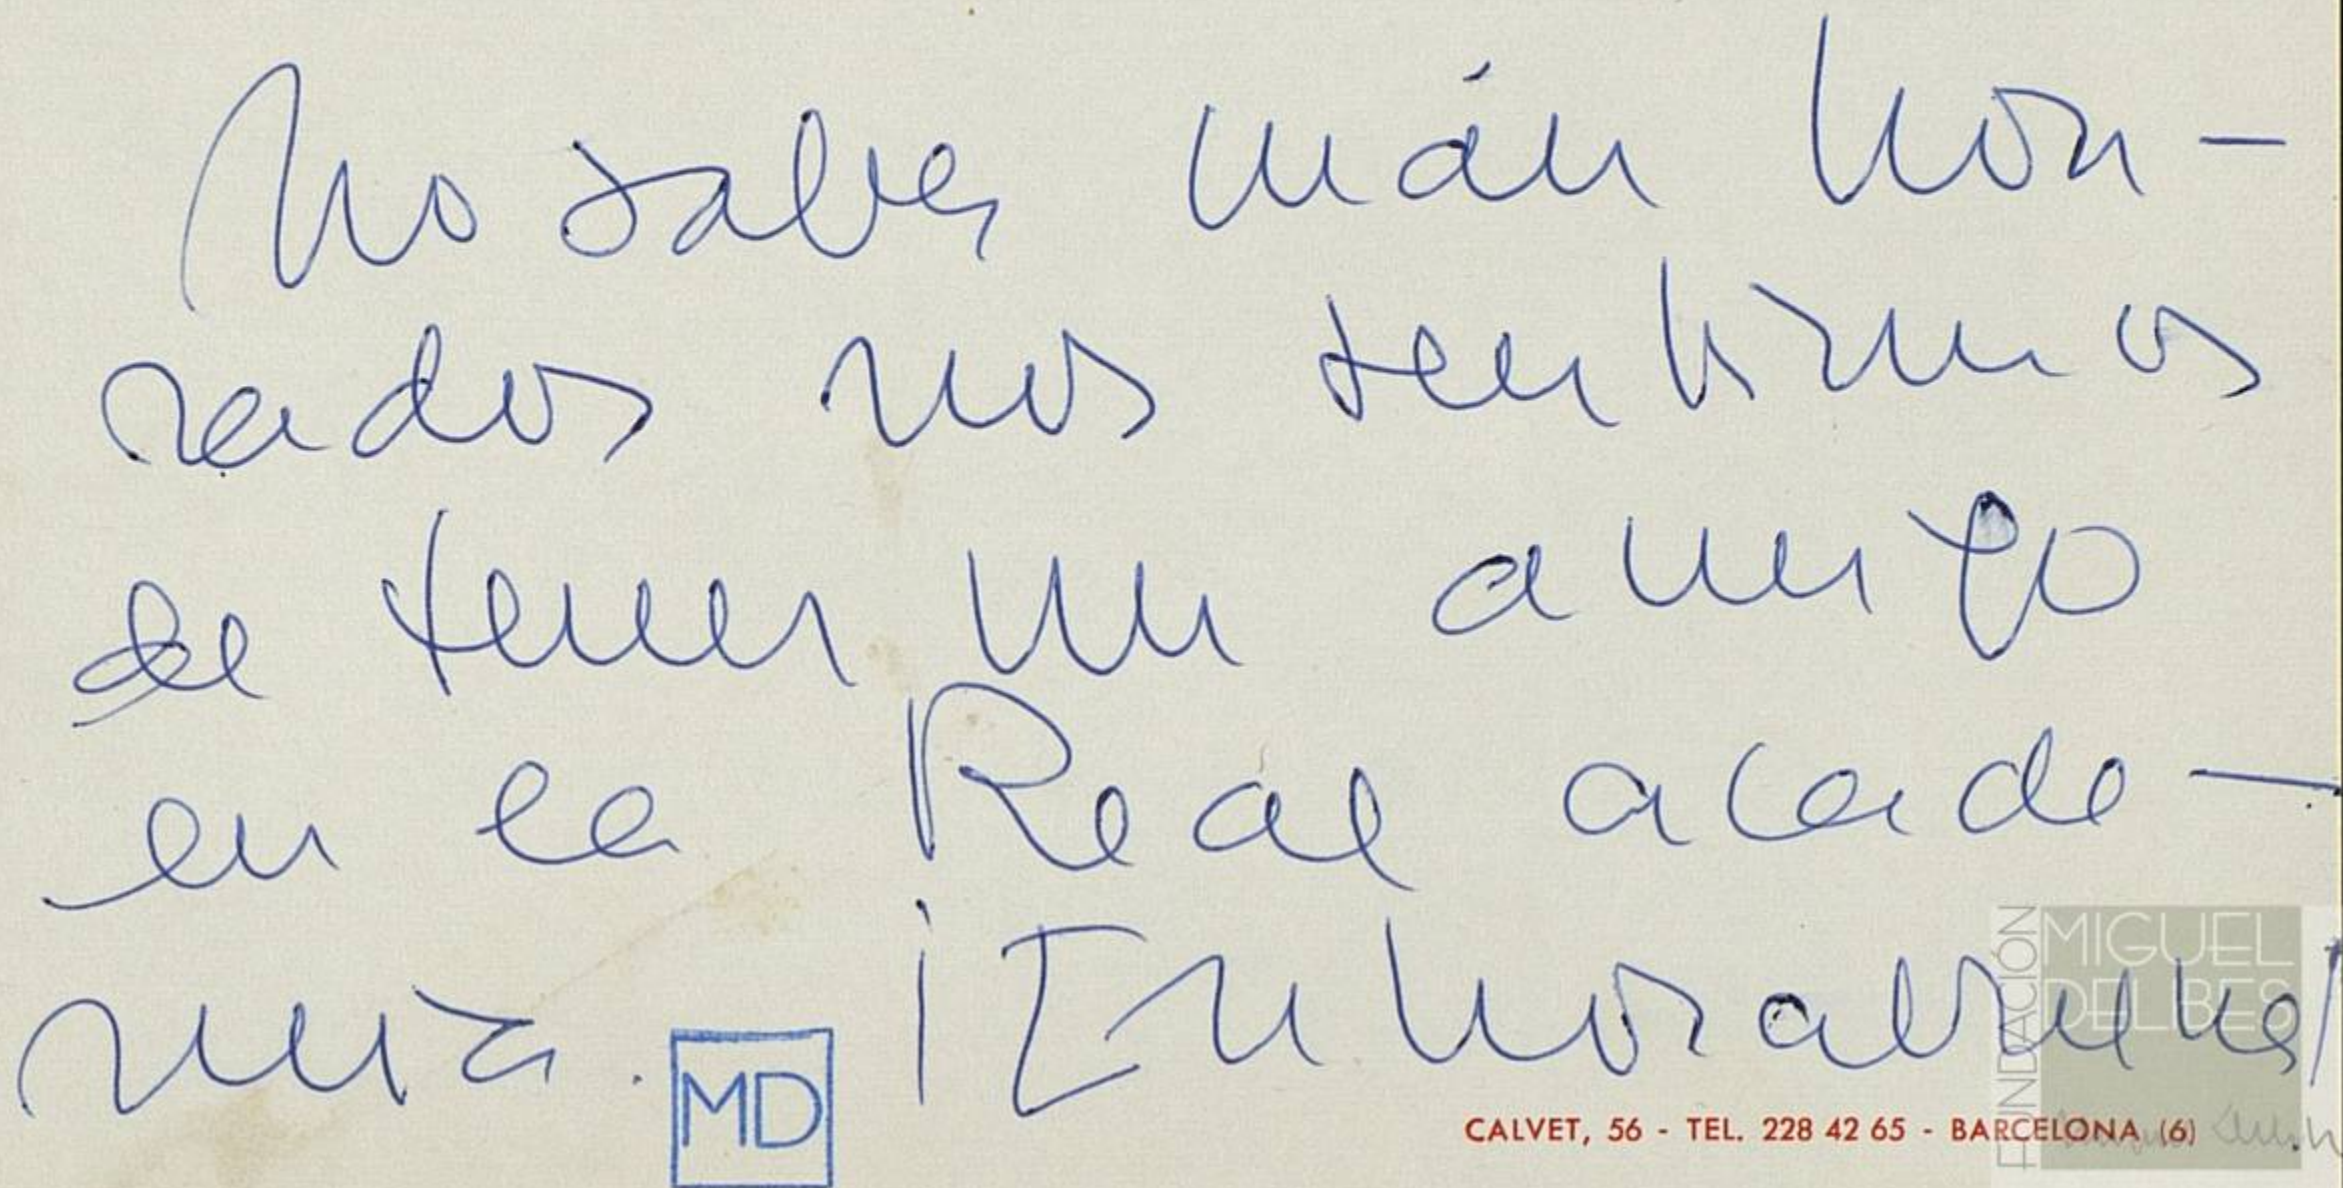 No sabes cuán hon-
rados nos sentimos
de tener un amigo
en la Real acade-
mia. ¡Enhorabuena!
MD
CALVET, 56 - TEL. 228 42 65 - BARCELONA (6)
FUNDACIÓN
MIGUEL
DELIBES